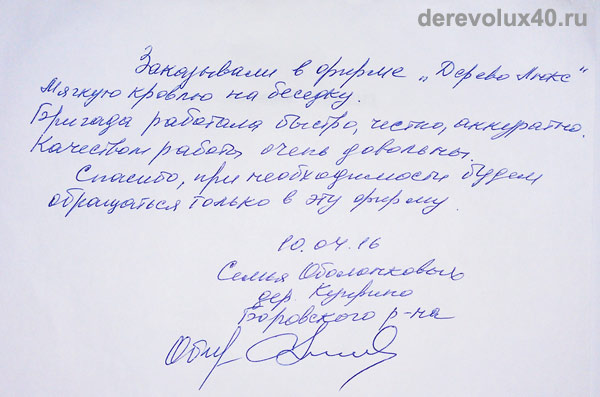 derevolux40.ru
Заказывали в фирме „Дерево Люкс“
Мягкую кровлю на беседку.
Бригада работала быстро, честно, аккуратно.
Качеством работы очень довольны.
Спасибо, при необходимости будем
обращаться только в эту фирму.
10.04.16
Семья
дер.
Боровского р-на